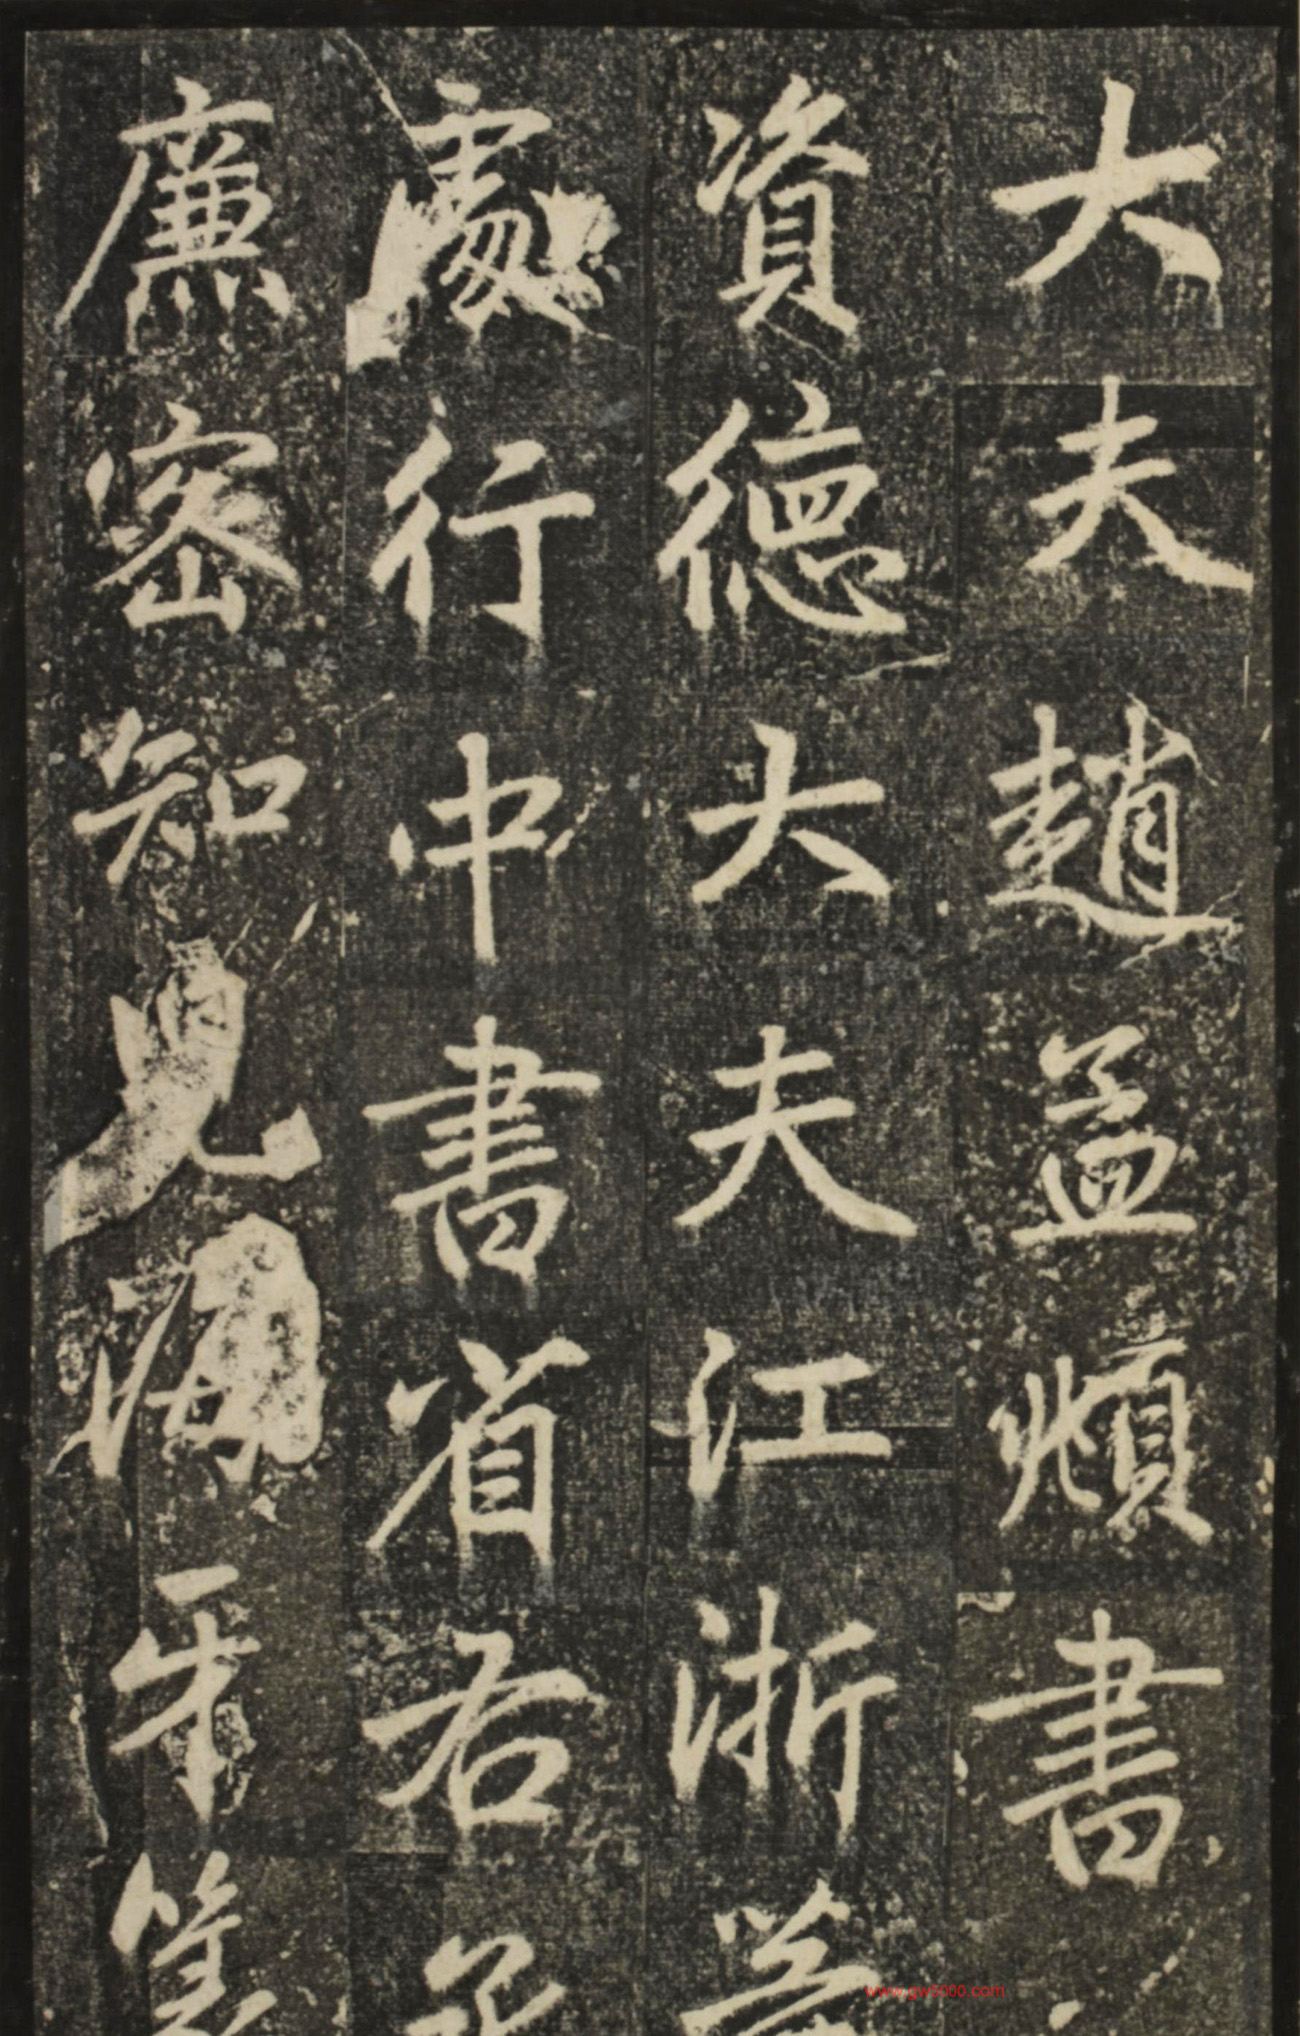 大夫趙孟頫書
資德大夫江浙等
處行中書省右丞
廉密知兒海牙篆
www.gw5000.com